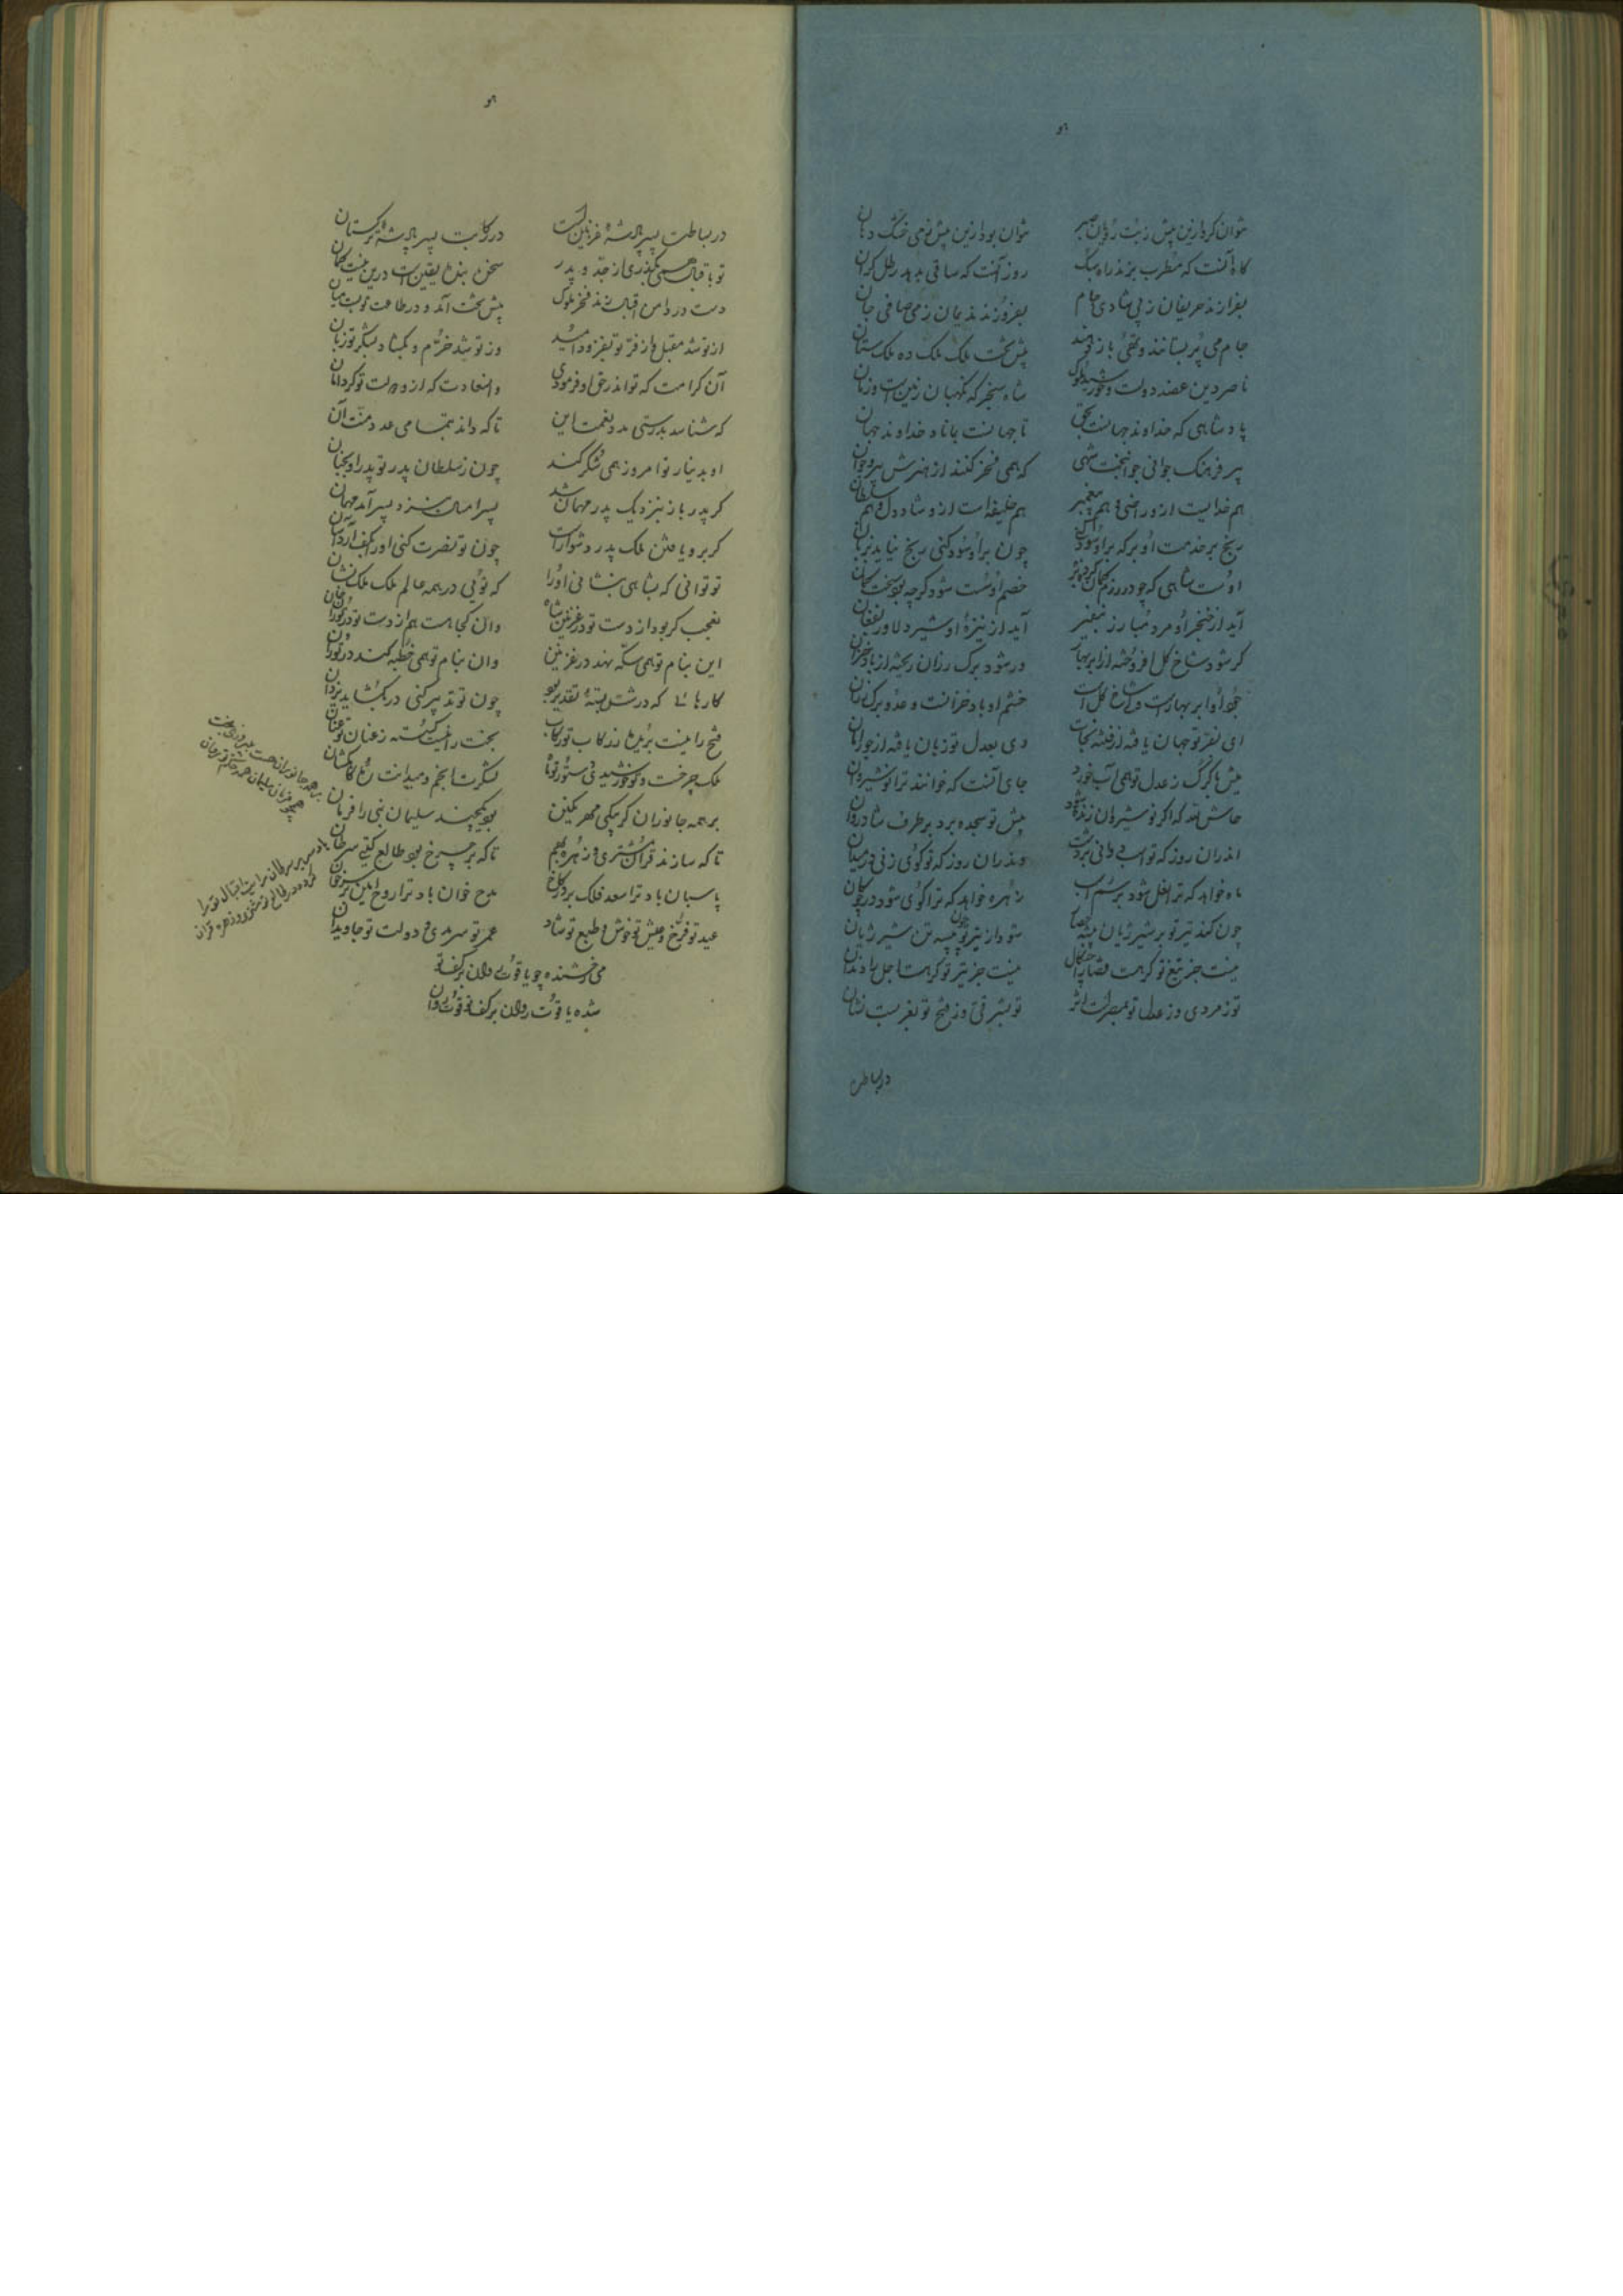 هو
نتوان کرد ازین بیش زمیت زبان صبر نتوان بود ازین بیش زمی خشک دهان
گاه آنست که مطرب بزند راه سبک روز آنست که ساقی بدهد رطل گران
بفرازند حریفان ز پی شادی جام بفروزند ندیمان ز می صافی جان
جام می پر بستانند و تهی باز دهند پیش تخت ملک ملک ده ملک ستان
ناصر دین عضد دولت و خورشید ملوک شاه سنجر که نگهبان زمین است و زمان
پادشاهی که خداوند جهانست بحق تا جهانست بماناد خداوند جهان
پیر فرهنگ جوانی جوانبخت شهی که همی فخر کنند از هنرش پیر و جوان
هم خدایست ازو راضی و هم پیغمبر هم خلیفه است ازو شاددل و هم سلطان
رنج بر خدمت او برکه برا و سود است چون برا و سود کنی رنج نیاید بزیان
اوست شاهی که چو در رزم کمان کرد بزه خصم او سست شود گرچه بود سخت کمان
آید از خنجر او مرد مبارز بنفیر آید از نیزه او شیر دلاور بفغان
گر شود شاخ گل افروخته از ابر بهار ور شود برگ رزان ریخته از باد خزان
جود او ابر بهارست و شاخ گل است خشم او باد خزانست و عدو برگ رزان
ای بفر تو جهان یافته از فتنه نجات وی بعدل تو زمان یافته از جور امان
میش با گرگ ز عدل تو همی آب خورد جای آنست که خوانند ترا نوشروان
حاش لله که اگر نوشروان زنده شود پیش تو سجده برد بر طرف شادروان
اندران روز که تو اسب دوانی بر دشت وندران روز که تو گوی زنی در میدان
ماه خواهد که ترا نعل شود بر سم اسب زهره خواهد که ترا گوی شود در چوگان
چون کند تیر تو بر شیر ژیان بیشه حصار شود از تیر تو چون بیشه تن شیر ژیان
نیست جز تیغ تو گر هست قضا را چنگال نیست جز تیر تو گر هست اجل را دندان
تو ز مردی و ز عدل تو بمصرست اثر تو بشرقی و ز فتح تو بغربست نشان
در بساطت
هو
در بساطت پسر پادشه غزنین است در رکابت پسر پادشه ترکستان
تو باقبال همی بگذری از جد و پدر سخن بنده یقین است درین نیست گمان
دست در دامن اقبالت زند فخر ملوک پیش تخت آمد و در طاعت تو بست میان
از تو شد مقبل و از فر تو بفزود امید وز تو شد خرم و بگشاد بشکر تو زبان
آن کرامت که تو اندر حق او فرمودی وان سعادت که ازو دولت تو کرد امان
که شناسد بدرستی عدد نعمت این تا که داند بتمامی عدد منت آن
او بدینار تو امروز همی شکر کند چون ز سلطان پدر تو پدر او بجنان
گر پدر باز بنزدیک پدر مهمان شد پسر امسال بنزد پسر آمد مهمان
گر برو یافتن ملک پدر دشوار است چون تو نصرت کنی او را بکف آرد آسان
تو توانی که بشاهی بنشانی او را که تویی در همه عالم ملک ملک نشان
نعجب گر بود از دست تو در غزنین شاه وان کجا هست هم از دست تو در توران خان
این بنام تو همی سکه نهد در غزنین وان بنام تو همی خطبه کند در توران
کارهائی که درشت بسته تقدیر بود چون تو تدبیر کنی در بگشاید یزدان
فتح را نیست بریدن ز رکاب تو رکاب بخت را نیست گسسته ز عنان تو عنان
ملک چرخست و تو خورشیدی و ستور تو ماه لشکرت انجم و میدانت ره کاهکشان
بر همه جانوران گر بیکی مهر نگین بود یکچند سلیمان نبی را فرمان
تا که سازند قران مشتری و زهره بهم تا که بر چرخ بود طالع گیتی سرطان
پاسبان باد ترا سعد فلک بر در کاخ مدح خوان باد ترا روح امین بر سر خوان
عید تو فرخ و عیش تو خوش و طبع تو شاد عمر تو سرمدی و دولت تو جاویدان
می رخشنده چو یاقوت روان بر کف تو
شده یاقوت روان بر کف تو قوت روان
بر همه جانوران هست بفیروزی بخت
همچو فرمان سلیمان همه حکم تو روان
باد سر بر سرطان رایت اقبال ترا
کرده در طالع تو مشتری و زهره قران